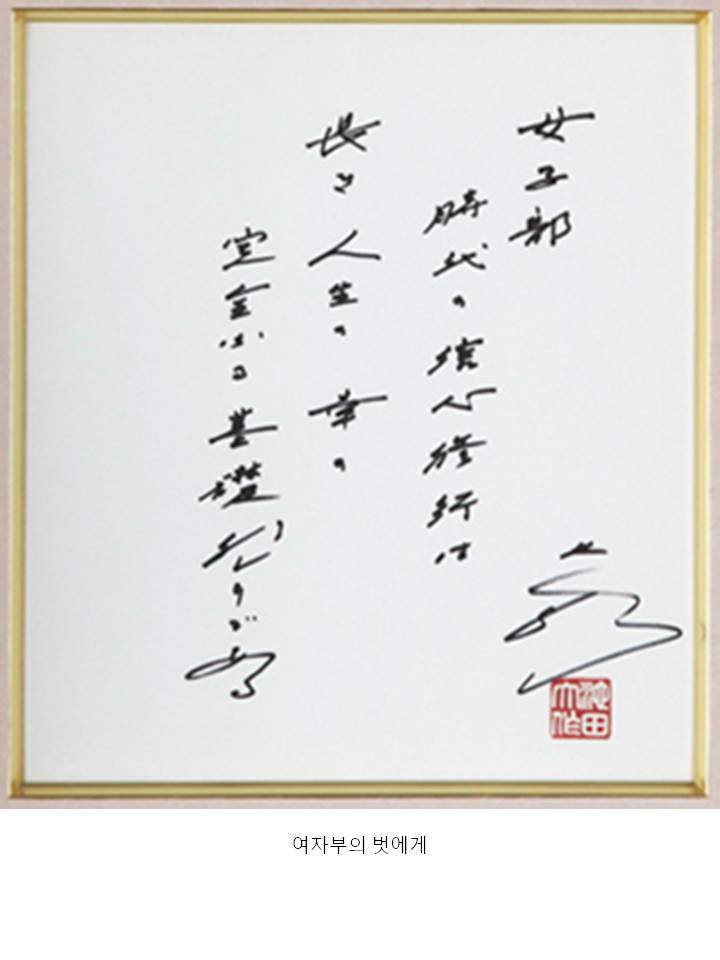 女子部
時代の信心修行は
長き人生の幸の
完全なる基礎
づくりである
池田大作
여자부의 벗에게